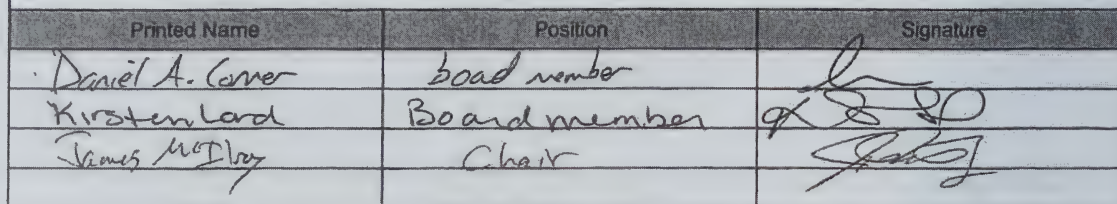 Printed Name Position Signature
Daniel A. Comer boad member
Kirsten Lord Board member
James McIlroy Chair